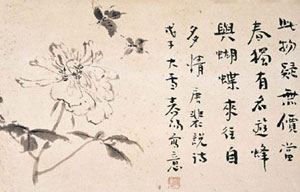 此物疑無價當
春獨有名遊蜂
與蝴蝶來往自
多情 唐裴說詩
戊子大雪春寫意